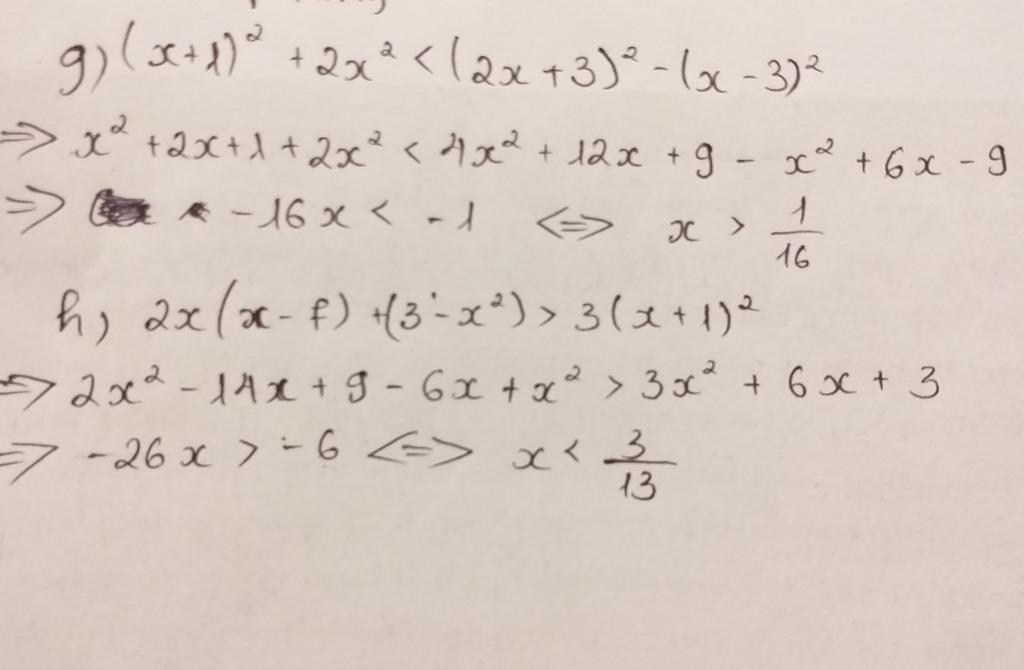 g) (x+1)² + 2x² < (2x+3)² - (x-3)²
=> x² + 2x + 1 + 2x² < 4x² + 12x + 9 - x² + 6x - 9
=> -16x < -1 <=> x > 1/16
h) 2x(x-7) + (3-x²) > 3(x+1)²
=> 2x² - 14x + 9 - 6x + x² > 3x² + 6x + 3
=> -26x > -6 <=> x < 3/13